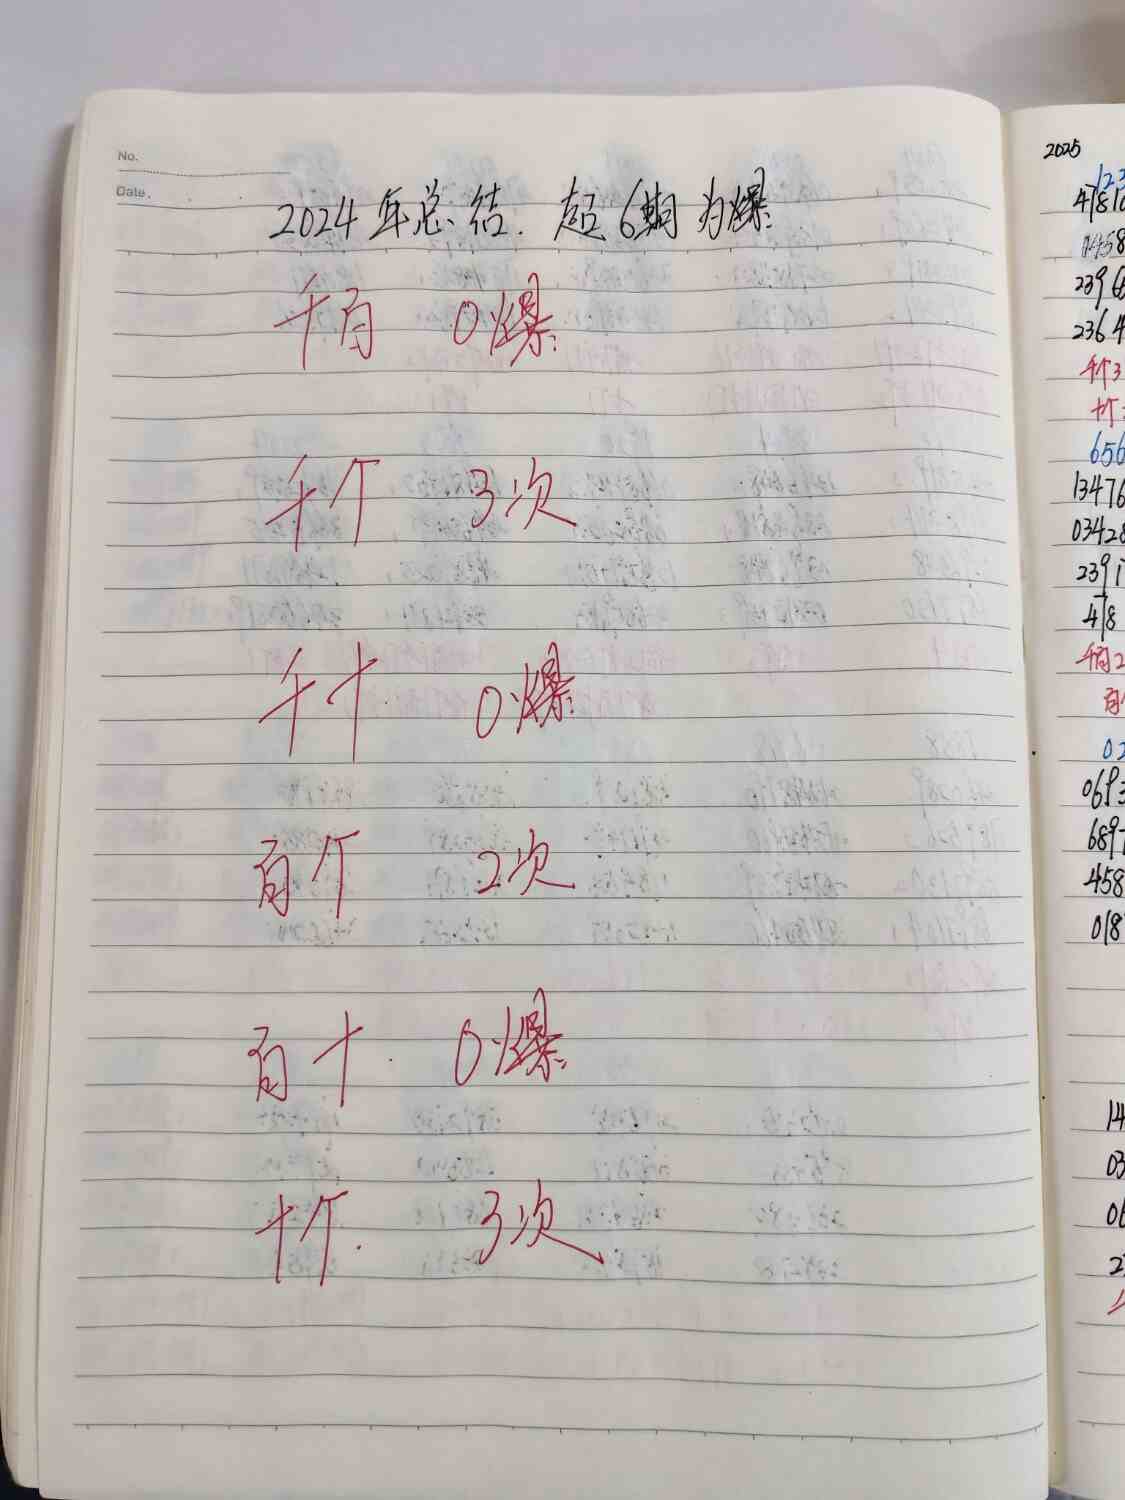 No.
Date.
2024年总结. 超6期为爆
千百 0爆
千个 3次
千十 0爆
百个 2次
百十. 0爆
十个. 3次
2025
123
4781
0458
2396
2364
千个3
十个
656
13476
03428
2391
478
千百2
百
02
0693
689
458
018
14
03
06
2